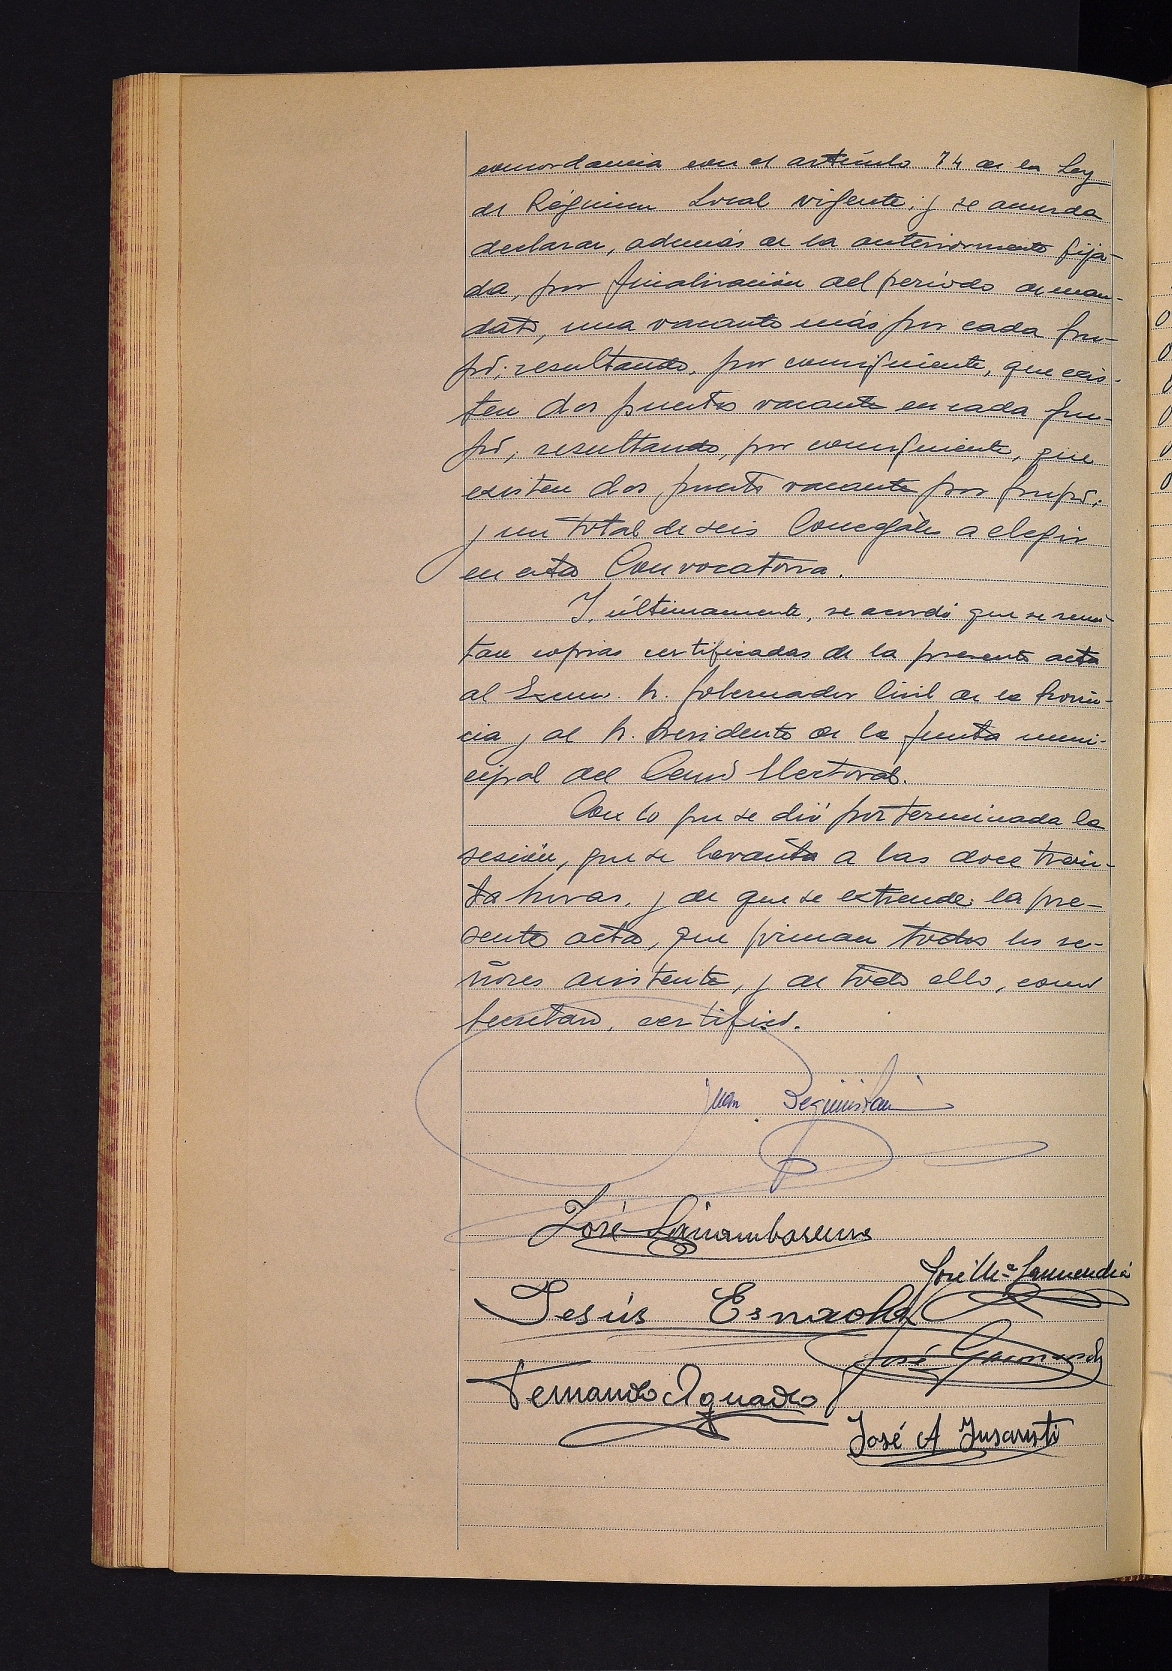 concordancia con el artículo 74 de la Ley
de Régimen Local vigente; y se acuerda
declarar, además de la anteriormente fija-
da, por finalización del período de man-
dato, una vacante más por cada gru-
po; resultando, por consiguiente, que exis-
ten dos puestos vacante en cada gru-
po, resultando, por consiguiente, que
existen dos puestos vacante por grupo;
y un total de seis Concejales a elegir
en esta Convocatoria.
Y, últimamente, se acordó que se remi-
tan copias certificadas de la presente acta
al Excmo. Sr. Gobernador Civil de la Provin-
cia y al Sr. Presidente de la Junta muni-
cipal del Censo Electoral.
Con lo que se dió por terminada la
sesión, que se levanta a las doce trein-
ta horas, y de que se extiende la pre-
sente acta, que firman todos los se-
ñores asistente, y de todo ello, como
Secretario, certifico.
Juan Beguiristain
José
José Mª
Jesús Esnaola
José
Fernando Aguado
José A Insausti